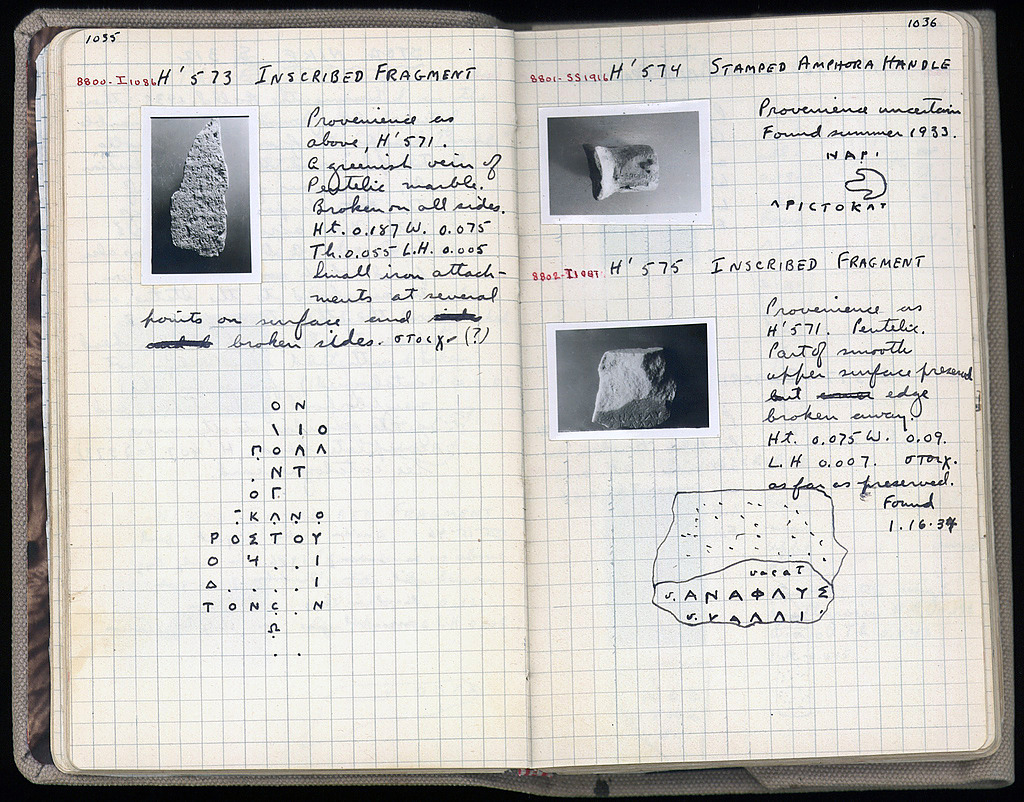 1035
8800-I1086 H'573 INSCRIBED FRAGMENT
Provenience as
above, H'571.
A greenish vein of
Pentelic marble.
Broken on all sides.
Ht. 0.187 W. 0.075
Th. 0.055 L.H. 0.005
Small iron attach-
ments at several
points on surface and
broken sides. στοιχ. (?)
Ο Ν
Ι Ο
Ο Λ Λ
. Ν Τ
. Ο Γ
Κ Λ Ν Ο
Ρ Ο Σ Τ Ο Υ
Ο . . Ι
Δ . . . . Ι
Τ Ο Ν . Ν
Ω
. .
1036
8801-SS1916 H'574 STAMPED AMPHORA HANDLE
Provenience uncertain
Found summer 1933.
ΝΑΡΙ
ΑΡΙCΤΟΚΑΤ
8802-I1087 H'575 INSCRIBED FRAGMENT
Provenience as
H'571. Pentelic.
Part of smooth
upper surface preserved
but edge
broken away.
Ht. 0.075 W. 0.09.
L.H 0.007. στοιχ.
as far as preserved.
Found
1.16.34
vacat
v. Α Ν Α Φ Λ Υ Σ
v. Κ Α Λ Λ Ι .